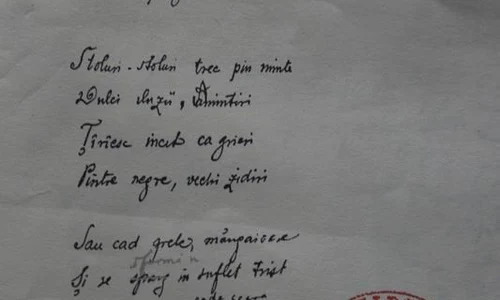 Stoluri-stoluri trec prin minte
Dulci iluzii, Amintiri
Țîrîesc încet ca greeri
Pintre negre, vechi zidiri
Sau cad grele, mângaioase
Și se sparg în suflet trist